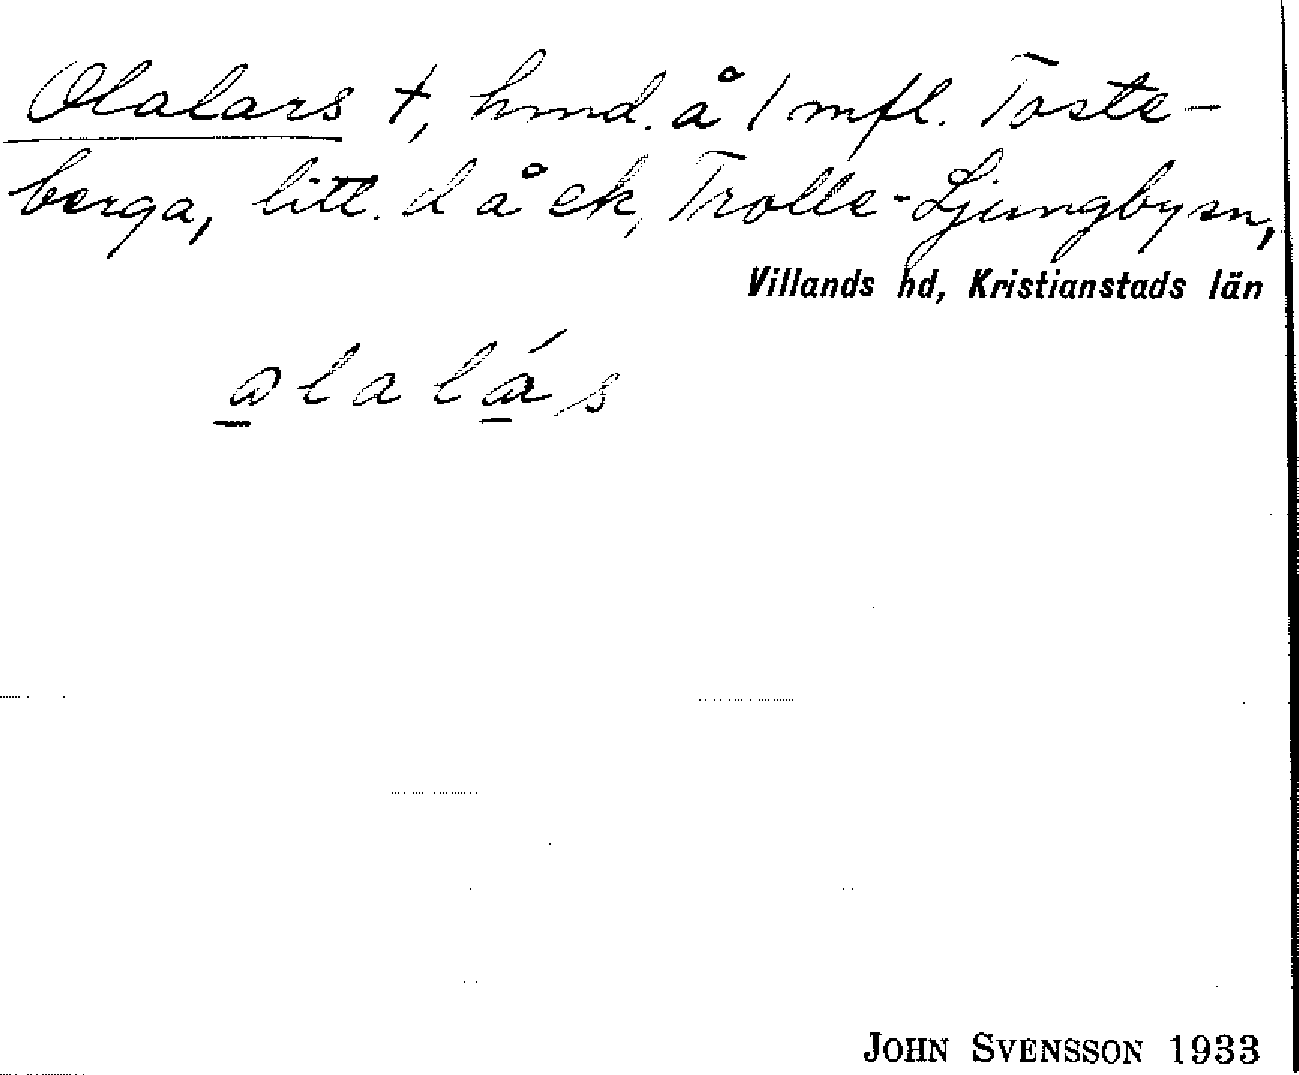 Olalars †, hmd. å 1 mfl. Toste-
berga, litt. d å ek, Trolle-Ljungby sn,
Villands hd, Kristianstads län
ɷlalɷ́s
JOHN SVENSSON 1933